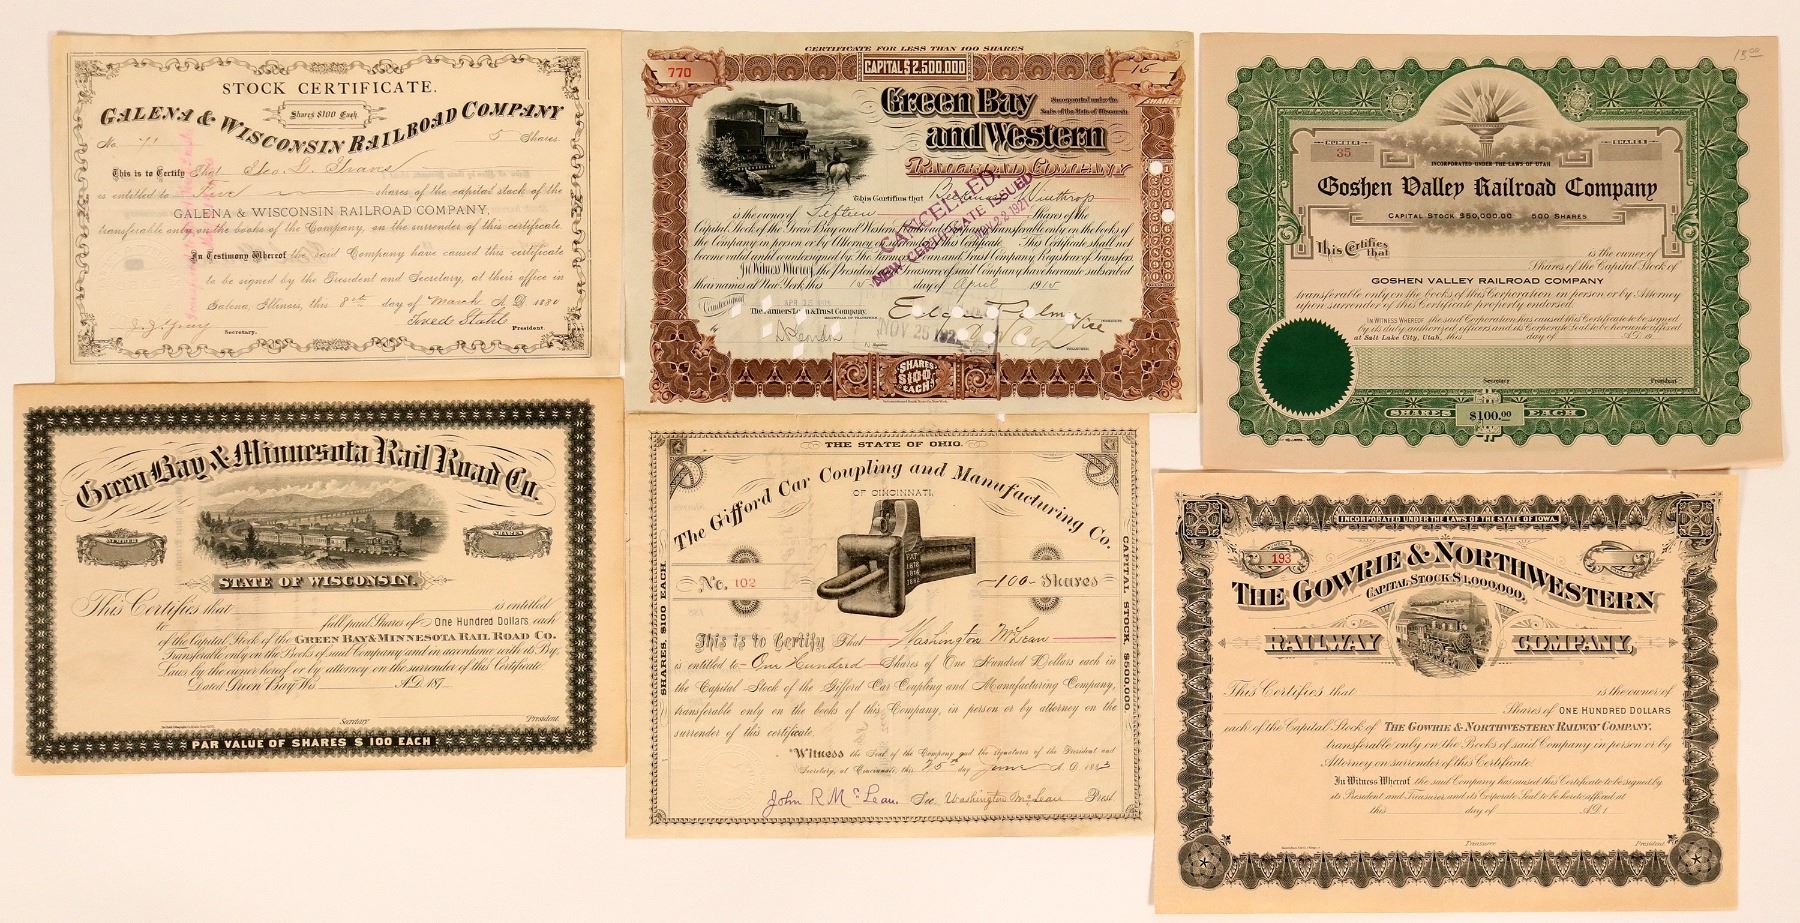 STOCK CERTIFICATE.
Shares $100 Each.
GALENA & WISCONSIN RAILROAD COMPANY
No. 71 5 Shares.
This is to Certify That Geo. L.
is entitled to Five shares of the capital stock of the
GALENA & WISCONSIN RAILROAD COMPANY,
transferable only on the books of the Company, on the surrender of this certificate.
In Testimony Whereof the said Company have caused this certificate
to be signed by the President and Secretary, at their office in
Galena, Illinois, this 8th day of March A.D. 1880
Secretary. President.
CERTIFICATE FOR LESS THAN 100 SHARES
CAPITAL $2,500,000
770 15
SHARES
Green Bay
and Western
Incorporated under the
Laws of the State of Wisconsin.
RAILROAD COMPANY
This Certifies that Winthrop
is the owner of Fifteen Shares of the
Capital Stock of the Green Bay and Western Railroad Company transferable only on the books of
the Company in person or by Attorney on surrender of this Certificate. This Certificate shall not
become valid until countersigned by The Farmers Loan and Trust Company Registrar of Transfers.
In Witness Whereof, the President and Treasurer of said Company have hereunto subscribed
their names at New York this 15 day of April 1915
CANCELLED.
NEW CERTIFICATE ISSUED
Countersigned
The Farmers Loan & Trust Company.
REGISTRAR OF TRANSFERS
NOV 25 192
SHARES
$100
EACH
15.00
NUMBER
35
SHARES
INCORPORATED UNDER THE LAWS OF UTAH
Goshen Valley Railroad Company
CAPITAL STOCK $50,000.00 500 SHARES
This Certifies
that is the owner of
Shares of the Capital Stock of
GOSHEN VALLEY RAILROAD COMPANY
transferable only on the books of this Corporation in person or by Attorney
upon surrender of this Certificate properly endorsed.
IN WITNESS WHEREOF, the said Corporation has caused this Certificate to be signed
by its duly authorized officers and its Corporate Seal to be hereunto affixed
at Salt Lake City, Utah, this day of A.D. 19
Secretary President
SHARES $100.00 EACH
Green Bay & Minnesota Rail Road Co.
NUMBER SHARES
STATE OF WISCONSIN.
This Certifies that is entitled
to full paid Shares of One Hundred Dollars each
of the Capital Stock of the GREEN BAY & MINNESOTA RAIL ROAD CO.
Transferable only on the Books of said Company and in accordance with its By
Laws by the owner hereof or by attorney on the surrender of this Certificate
Dated Green Bay Wis A.D. 187
Secretary President
PAR VALUE OF SHARES $100 EACH
THE STATE OF OHIO.
The Gifford Car Coupling and Manufacturing Co.
OF CINCINNATI.
PAT
1878
1882
No. 102 100 Shares
SHARES, $100 EACH.
CAPITAL STOCK $500,000
This is to Certify That Washington McLean
is entitled to One Hundred Shares of One Hundred Dollars each in
the Capital Stock of the Gifford Car Coupling and Manufacturing Company,
transferable only on the books of this Company, in person or by attorney on the
surrender of this certificate.
Witness the Seal of the Company and the signatures of the President and
Secretary, at Cincinnati, this 25th day June A.D. 1883
John R McLean. Sec. Washington McLean Prest
INCORPORATED UNDER THE LAWS OF THE STATE OF IOWA.
193
THE GOWRIE & NORTHWESTERN
CAPITAL STOCK $1,000,000.
RAILWAY COMPANY,
This Certifies that is the owner of
Shares of ONE HUNDRED DOLLARS
each of the Capital Stock of THE GOWRIE & NORTHWESTERN RAILWAY COMPANY,
transferable only on the Books of said Company in person or by
Attorney on surrender of this Certificate.
In Witness Whereof the said Company has caused this Certificate to be signed by
its President and Treasurer and its Corporate Seal to be hereto affixed at
this day of A.D. 1
Treasurer President